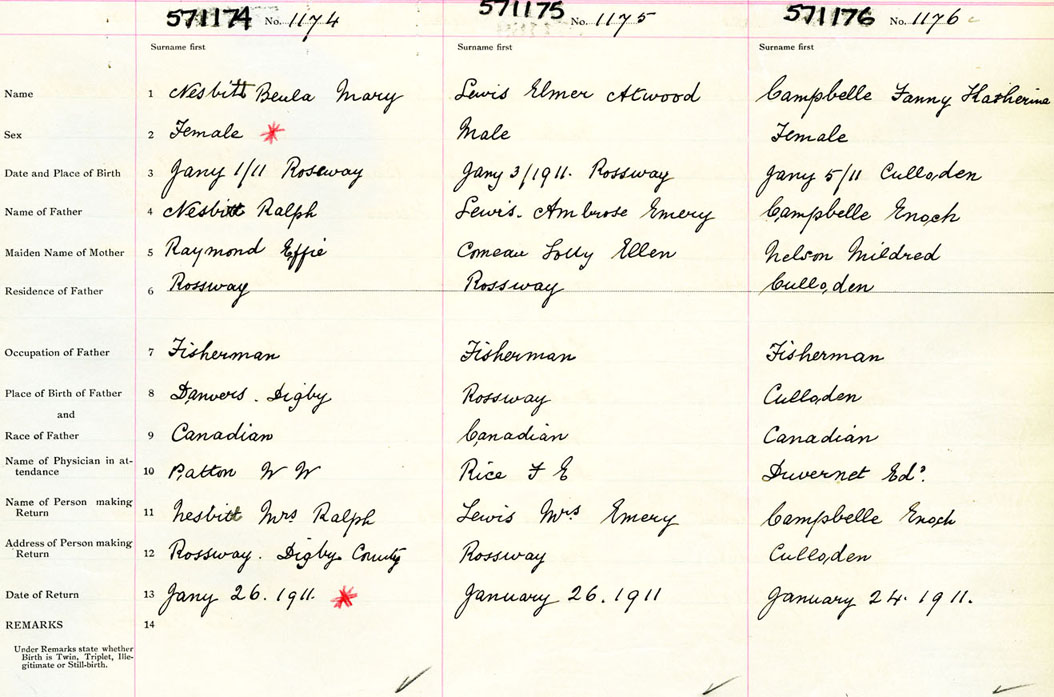 571174 No. 1174 571175 No. 1175 571176 No. 1176
Surname first Surname first Surname first
Name 1 Nesbitt Beula Mary Lewis Elmer Atwood Campbelle Fanny Katherine
Sex 2 Female Male Female
Date and Place of Birth 3 Jany 1/11 Rossway Jany 3/1911. Rossway Jany 5/11 Culloden
Name of Father 4 Nesbitt Ralph Lewis. Ambrose Emery Campbelle Enoch
Maiden Name of Mother 5 Raymond Effie Comeau Ellen Nelson Mildred
Residence of Father 6 Rossway Rossway Culloden
Occupation of Father 7 Fisherman Fisherman Fisherman
Place of Birth of Father 8 Danvers. Digby Rossway Culloden
and
Race of Father 9 Canadian Canadian Canadian
Name of Physician in at-
tendance 10 Patton W W Rice F E Duvernet Ed.
Name of Person making
Return 11 Nesbitt Mrs Ralph Lewis Mrs Emery Campbelle Enoch
Address of Person making
Return 12 Rossway. Digby County Rossway Culloden
Date of Return 13 Jany 26. 1911. January 26. 1911 January 24. 1911.
REMARKS 14
Under Remarks state whether
Birth is Twin, Triplet, Ille-
gitimate or Still-birth.